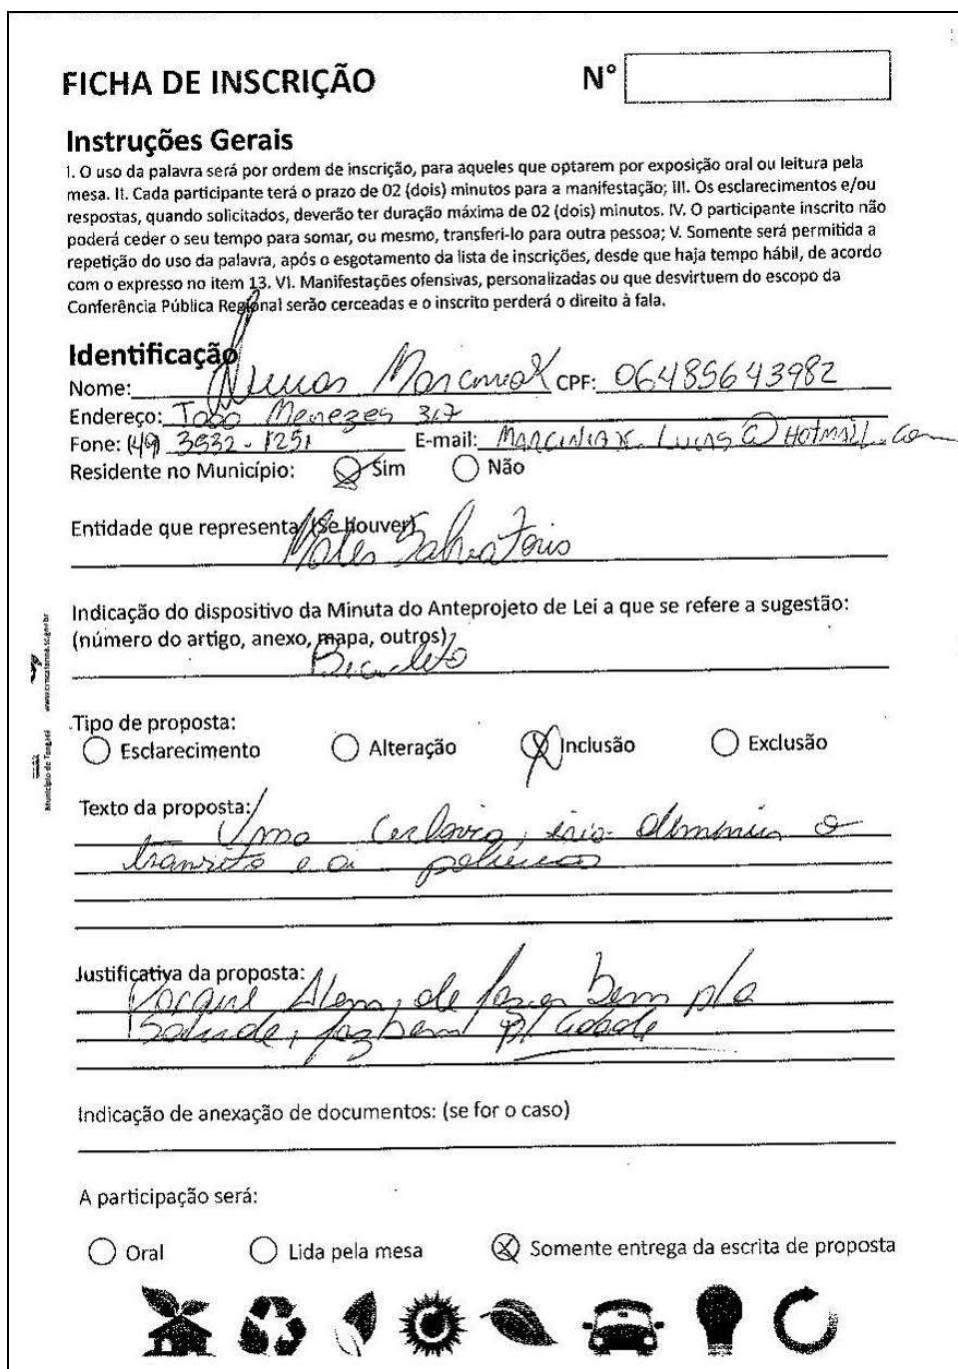 FICHA DE INSCRIÇÃO
N°
Instruções Gerais
I. O uso da palavra será por ordem de inscrição, para aqueles que optarem por exposição oral ou leitura pela
mesa. II. Cada participante terá o prazo de 02 (dois) minutos para a manifestação; III. Os esclarecimentos e/ou
respostas, quando solicitados, deverão ter duração máxima de 02 (dois) minutos. IV. O participante inscrito não
poderá ceder o seu tempo para somar, ou mesmo, transferi-lo para outra pessoa; V. Somente será permitida a
repetição do uso da palavra, após o esgotamento da lista de inscrições, desde que haja tempo hábil, de acordo
com o expresso no item 13. VI. Manifestações ofensivas, personalizadas ou que desvirtuem do escopo da
Conferência Pública Regional serão cerceadas e o inscrito perderá o direito à fala.
Identificação
Nome: CPF: 06485643982
Endereço: João Menezes 317
Fone: (49) 3532-1251 E-mail: MARCINIAK.LUCAS@HOTMAIL.com
Residente no Município: Sim Não
Entidade que representa (Se houver)
Mater Salvatoris
Indicação do dispositivo da Minuta do Anteprojeto de Lei a que se refere a sugestão:
(número do artigo, anexo, mapa, outros)
Município de Tangará
Tipo de proposta:
Esclarecimento Alteração Inclusão Exclusão
Texto da proposta:
Uma
transito e a
Justificativa da proposta:
Porque Alem, de fazer bem p/ a
Saude, faz bem p/ Cidade
Indicação de anexação de documentos: (se for o caso)
A participação será:
Oral Lida pela mesa Somente entrega da escrita de proposta